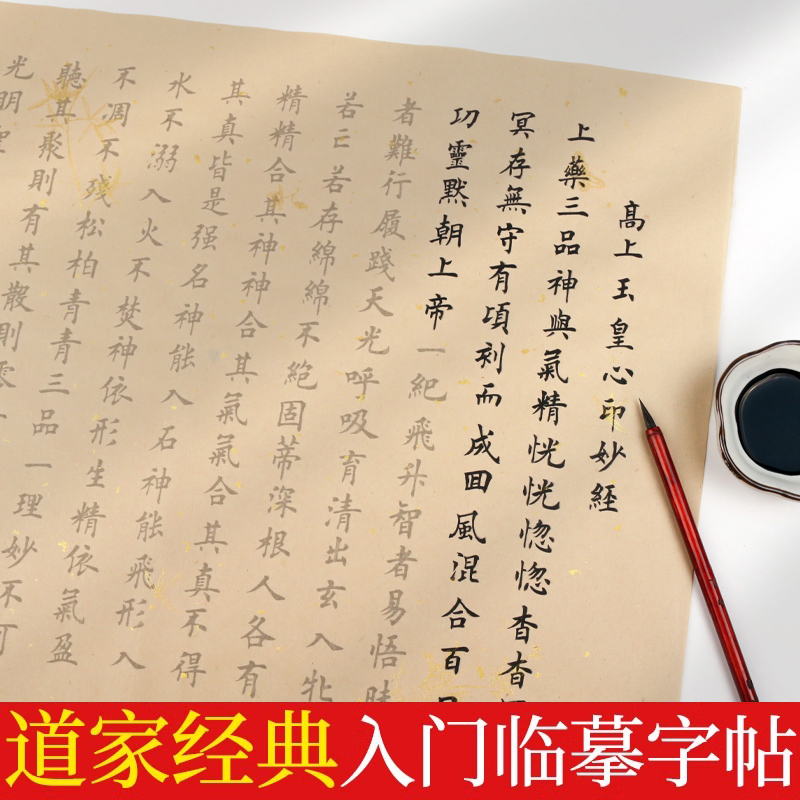 髙上玉皇心印妙經
上藥三品神與氣精恍恍惚惚杳杳
冥存無守有頃刻而成囬風混合百
功靈默朝上帝一紀飛升智者易悟
者難行履踐天光呼吸育清出玄入牝
若亡若存綿綿不絶固蒂深根人各有
精精合其神神合其氣氣合其真不得
其真皆是强名神能入石神能飛形入
水不溺入火不焚神依形生精依氣盈
不凋不殘松柏青青三品一理妙不可
聽其聚則有其散則
光明
道家经典入门临摹字帖